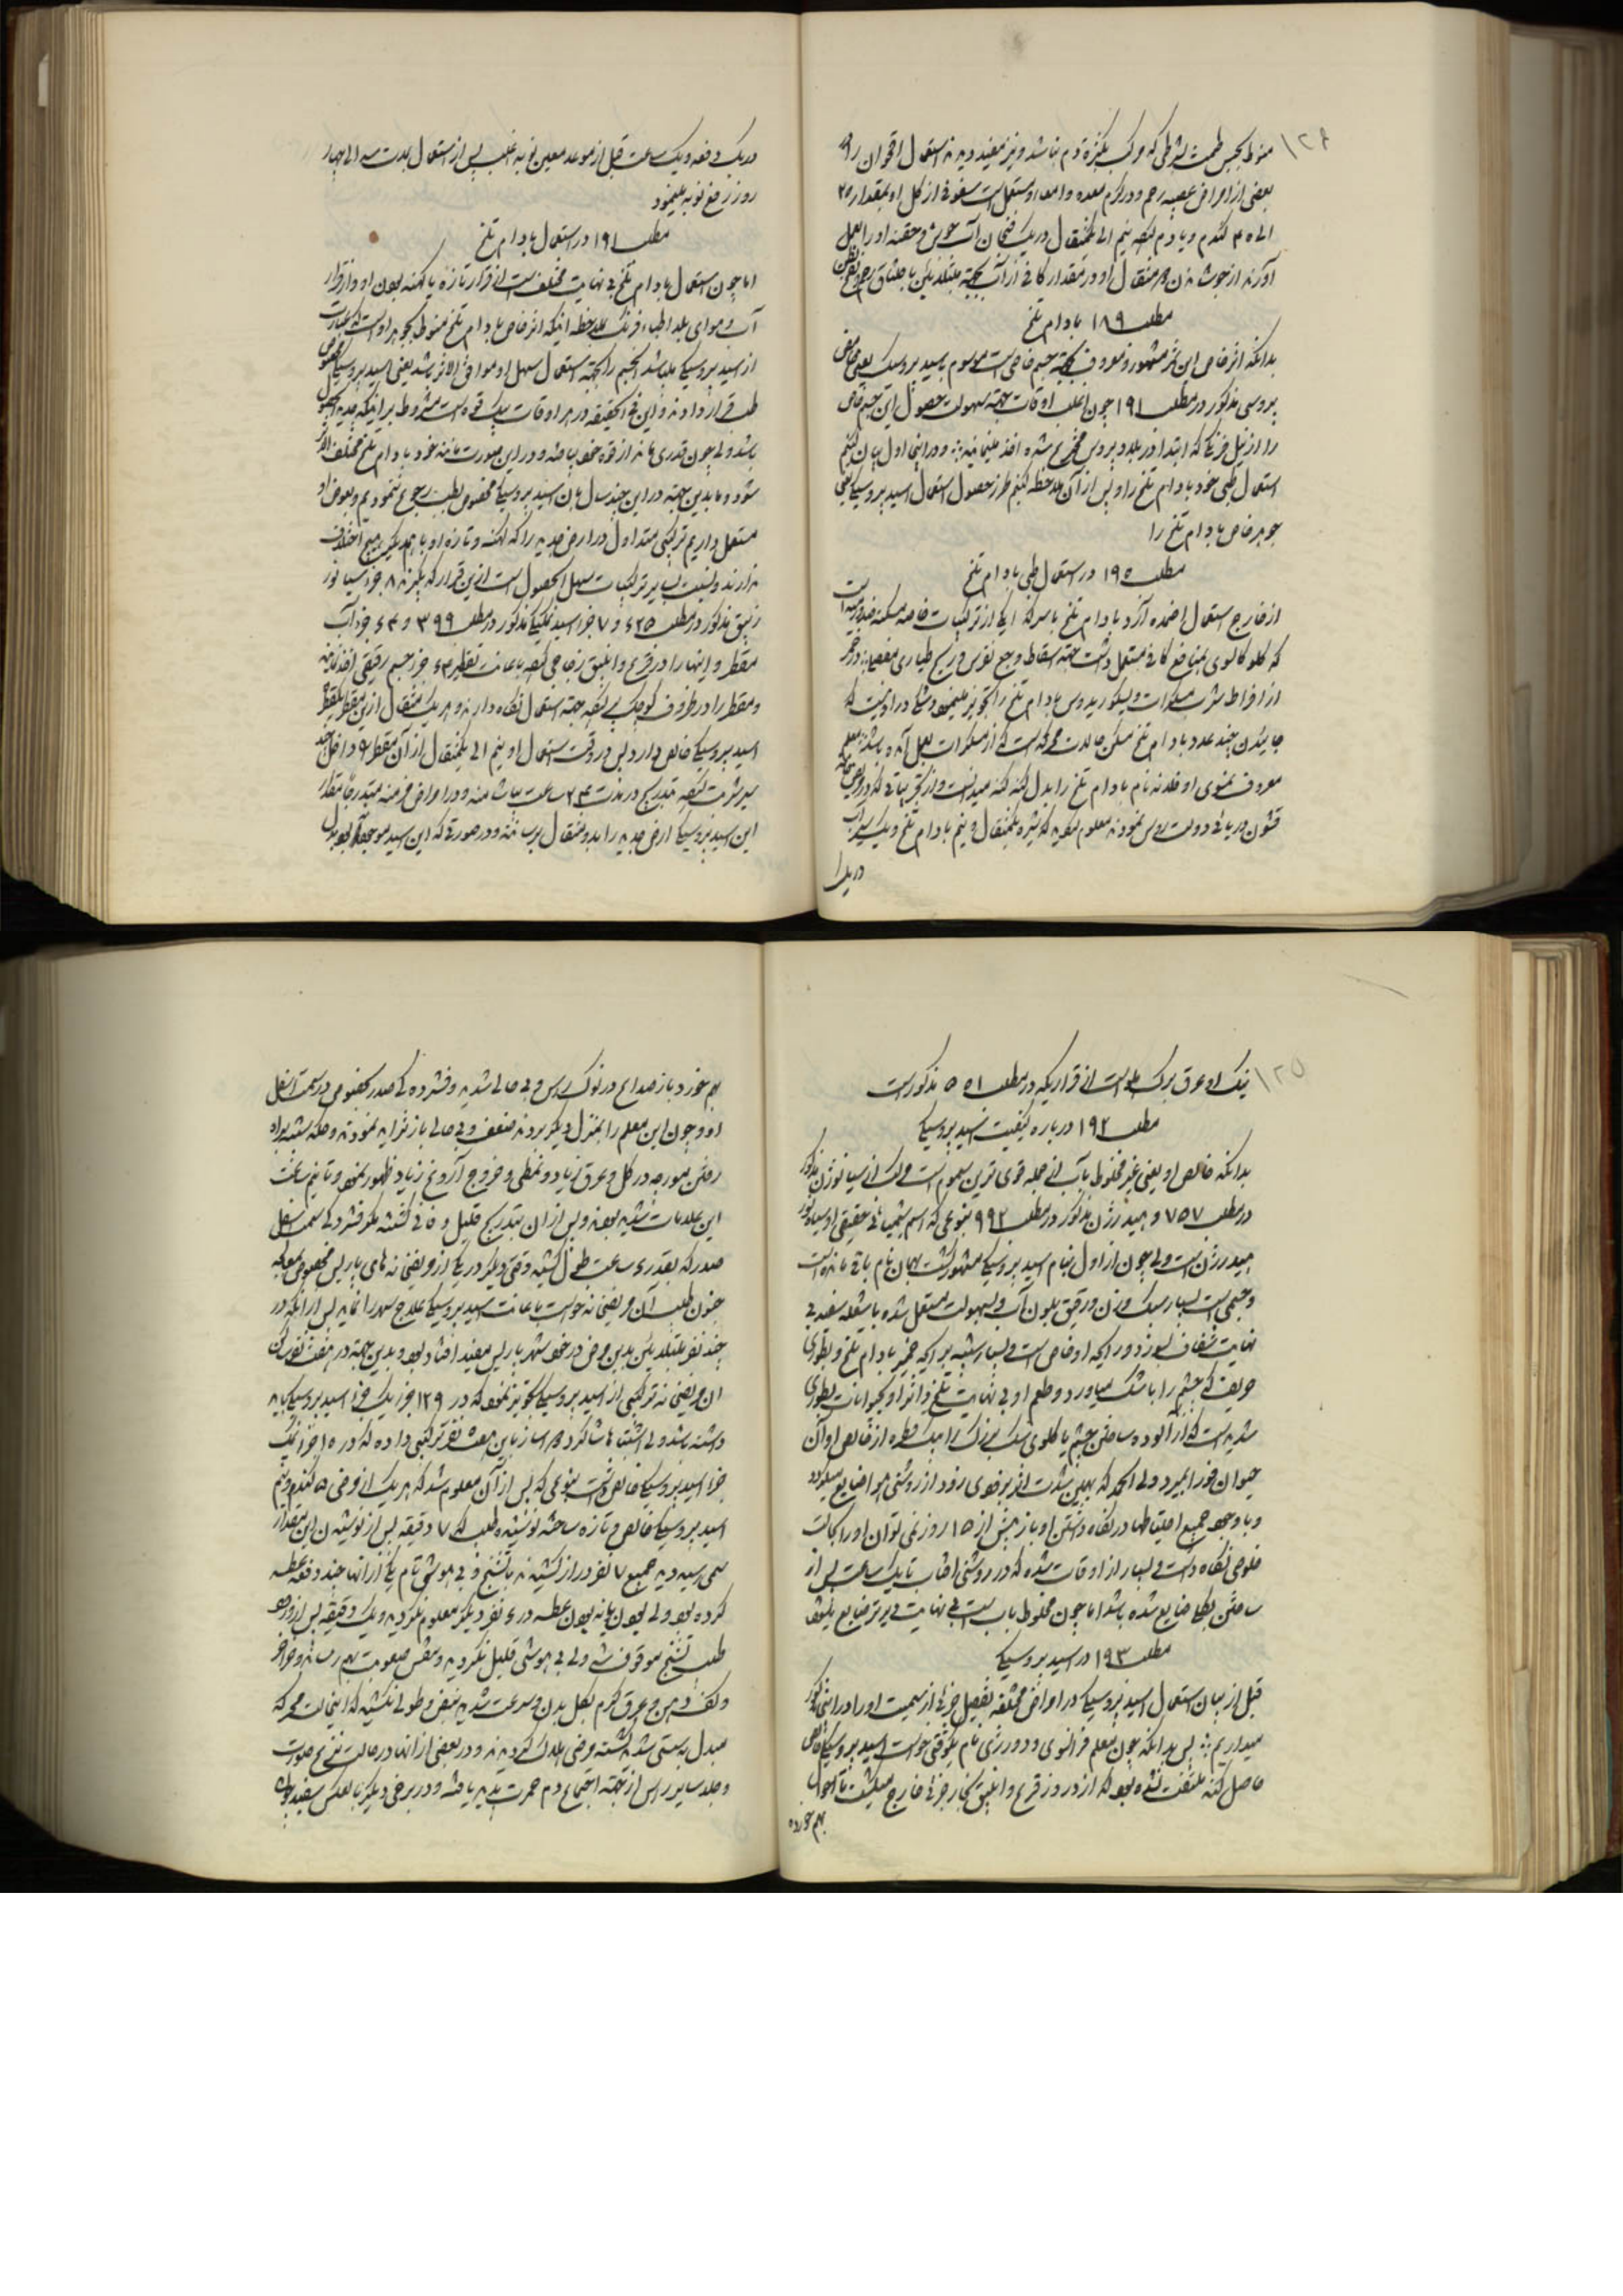 ۱۲۴
منوط بحبس طمث بشرطی که مرکب بکثرة دم نباشد و نیز مفید دیدند استعمال اقحوان را در
بعضی از امراض عصبیه رحم و در کرم معده و امعاء و مستعمل است سفوفی از کل او بمقدار ۲۵
الی ۳۵ کندم و یا دم کرده نیم الی یکمثقال در یک فنجان آب جوش و حقنه او را بعمل
آورند از جوشاندن مثقال او در مقدار کافی از آب بجهة مبتلایان باختناق رحم
مطلب ۱۸۹ بادام تلخ
بدانکه اثر خاص این ثمر مشهور و معروف بجهة جسم خاصی است موسوم باسید پروسیک یعنی حامض
پروسی مذکور در مطلب ۱۹۱ چون اغلب اوقات بجهة سهولت حصول این جسم خاص
را از نیل فرنگی که ابتدا در بلاد پروس مخترع شده اخذ مینمایند و در اینجا اول بیان کنیم
استعمال طبی خود بادام تلخ را و پس از آن ملاحظه کنیم طرز حصول و استعمال اسید پروسیک یعنی
جوهر خاص بادام تلخ را
مطلب ۱۹۰ در استعمال طبی بادام تلخ
از خارج استعمال ضماد آرد بادام تلخ با سرکه یکی از ترکیبات خاصه مسکنه
که کلوکالوی بمنافع کافی مستعمل داشت بجهة اسقاط وجع نقرس و ریح طیاری مفصلیه و در خمر
از افراط شرب مسکرات دیسکوریدوس بادام تلخ را تجویز مینمود و شکی در او نیست که
جائیدن چند عدد بادام تلخ مسکن حالت محرکه است که از مسکرات بعمل آمده باشد و معلم
معروف نام بادام تلخ را بدل کنه کنه میدانست و از تجربیاتی که در
قشون دریائی دولت روس نمودند معلوم کردید که شیره یکمثقال و نیم بادام تلخ و یک سیر آب
در یک
در یک دفعه و یک ساعت قبل از موعد معین نوبه اغلب پس از استعمال بمدت سه الی چهار
روز رفع نوبه مینمود
مطلب ۱۹۱ در استعمال بادام تلخ
اما چون استعمال بادام تلخ بی نهایت مختلف است از قرار تازه یا کهنه بودن او و از قرار
آب و هوای بلد اطباء فرنک بملاحظه اینکه اثر خاص بادام تلخ منوط بجوهر او است که عبارت
از اسید پروسیکی میباشد الجسم را بجهة استعمال سهل او و موافق الاثر باشد یعنی اسید پروسیکی
طب قرار دادند و این فی الحقیقه در هر اوقات یک قوه است مشروط بر اینکه جدید الحصول
باشد ولی چون قدری مانده از قوه خود بیافتد و در این صورت مانند خود بادام تلخ مختلف الاثر
شود و ما بدین جهة در این چند سال بان اسید پروسیکی مخصوص بطب رجوع ننمودیم و بعوض او
مستعمل داریم ترکیبی متداول در ارض جدید را که کهنه و تازه او با هم دیگر هیچ اختلاف
ندارند و نسبت بسایر ترکیبات سهل الحصول است از این قرار که بگیرند ۸ جزء سیانور
زیبق مذکور در مطلب ۶۲۵ و ۷ جزء اسید نمکیکی مذکور در مطلب ۳۹۹ و ۶۴ جزء آب
مقطر و اینها را در قرع و انبیق زجاجی کرده باعانت تقطیر ۶۳ جزء جسم رقیقی اخذ نمایند
و مقطر را در ظروف کوچک پر کرده بجهة استعمال نکاه دارند و هر یک مثقال از این مقطر یکقطره
اسید پروسیکی خالص دارد و پس در وقت استعمال او نیم الی یکمثقال از آن مقطر را داخل
سیر شربت کرده بتدریج در مدت ۲۴ ساعت بیاشامند و در امراض مزمنه متدرجا مقدار
این اسید پروسیکی ارض جدید را بدو مثقال برسانند و در صورتی که این اسید موجود نبود بدل
۱۲۵
نیک او عرق برک هلو است از قراریکه در مطلب ۵۵۱ مذکور است
مطلب ۱۹۲ در باره کیفیت اسید پروسیکی
بدانکه خالص او یعنی غیر مخلوط بآب از جمله قوی ترین سموم است مرکب از سیانوژن مذکور
در مطلب ۷۵۷ و هیدرژن مذکور در مطلب ۹۹۲ بنوعی که اسم شیمیائی حقیقی او سیانور
هیدرژن است ولی چون از اول بنام اسید پروسیکی مشهور کشت بهمان نام باقی مانده است
و جسمی است بسیار سبک وزن و رقیق بلون آب و بسهولت مشتعل شده با شعله سفید بی
نهایت شفاف بسوزد و رایحه او خاص است و بسیار شبیه برایحه خمیر بادام تلخ و بطوری
حریف که چشم را با شک میاورد و طعم او بی نهایت تلخ و اثر او بحیوانات بطوری
شدید است که از آلوده ساختن چشم یا کلوی سک بزرک را بیک قطره از خالص او آن
حیوان فورا بمیرد ولی الحمد که بهمین شدت اثر بزودی رود از روشنی هوا ضایع میکردد
و با وجود جمیع احتیاطها در نکاه داشتن او باز بیش از ۱۵ روز نمی توان او را بحالت
خلوص نکاه داشت و بسیار از اوقات شده که در روشنی افتاب تا یک ساعت پس از
ساختن بکلی ضایع شده باشد اما چون مخلوط بآب است بی نهایت دیرتر ضایع میشود
مطلب ۱۹۳ در اسید پروسیکی
قبل از بیان استعمال اسید پروسیکی در امراض مختلفه تفصیل جزئی از سمیت او را در اینجا مذکور
میداریم پس بدانکه چون معلم فرانسوی و دوروزی نام یکوقتی خواست اسید پروسیکی خالص
حاصل کند ملتفت نشده بود که از درز قرع و انبیق بخار جزئی خارج میکشت تا احوالش
بهم خورده
بهم خورد با صداع در نوک راس و بی حالی شدید و فشردکی صدر بخصوص در سمت اسفل
او و چون این معلم را بمنزل دیگر بردند ضعف و بی حالی باز تزاید نمودند و حکه شبیه براه
رفتن مورچه در کل و عرق زیاد و تمطی و خروج آروغ زیاد ظهور نمود و تا نیم ساعت
این علامات شدید بودند و پس از آن بتدریج قلیل و فانی کشتند مکر فشردکی سمت اسفل
صدر که بقدر ۶ ساعت طول کشید وقتی دیگر در یکی از مریضخانه های پاریس مخصوص بمعالجه
جنون طبیب آن مریضخانه خواست باعانت اسید پروسیکی علاج صرع را نماید پس از آنکه در
چند نفر مبتلایان بدین مرض در خود شهر پاریس مفید افتاده بود و بدین جهة در هفت نفر از
آن مریضخانه ترکیبی از اسید پروسیکی تجویز نمود که در ۱۲۹ جزء یک جزء اسید پروسیکی باید
داشته باشد ولی اشتباها شاکرد دواساز باین هفت نفر ترکیبی داده که در ۱۵ جزء یک
جزء اسید پروسیکی خالص داشت بنوعی که پس از آن معلوم شد که هر یک از مرضی ۵ کندم و نیم
اسید پروسیکی خالص و تازه ساخته نوشیده و طبیب که ۷ دقیقه پس از نوشیدن این مقدار
سمی رسید دید جمیع ۷ نفر دراز کشیده با تشنج و بی هوشی تام یکی از آنها چند دفعه عطسه
کرده بود ولی بدون باین بودن عطسه در ۶ نفر دیگر معلوم نکردید و یک دقیقه پس از ورود
طبیب تشنج موقوف شد ولی بی هوشی قلیل نکردید و تنفس صعوبت بهم رساند و خرخر
و کف دهن و عرق کرم بکل بدن و سرعت شدید نبض و طولی نکشید که این حالت محرکه
مبدل بسستی شدید کشته مرضی هلاک کردیدند و در بعضی از آنها در حالت نزع صورت
و جلد سایر راس از جهة اجتماع دم حمرت پدید یافته و در برخی دیگر بالعکس سفید